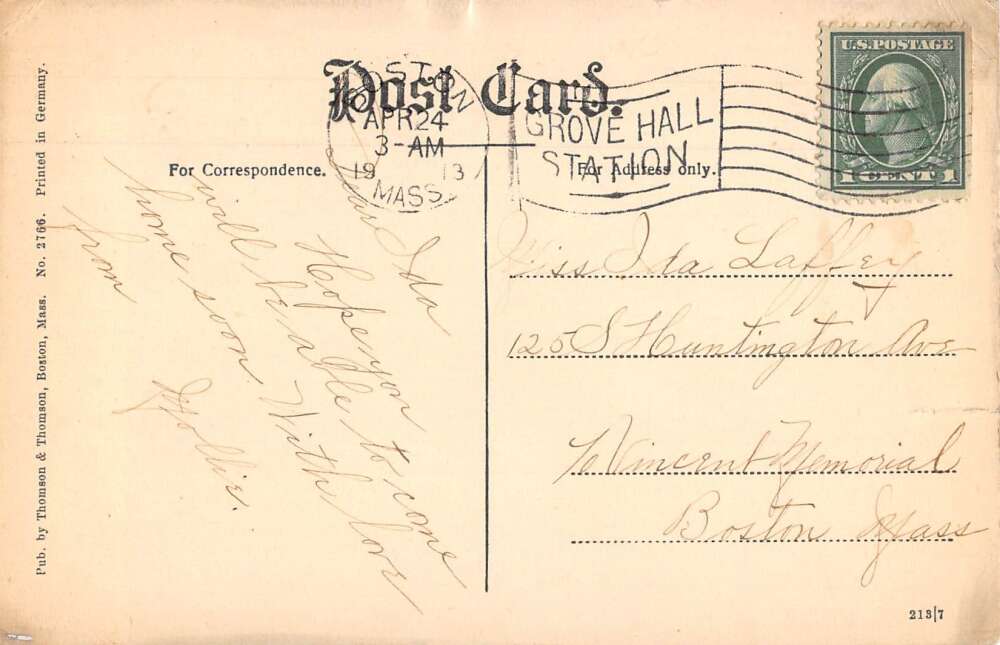 Post Card.
For Correspondence.
For Address only.
BOSTON
APR 24
3-AM
1913
MASS.
GROVE HALL
STATION
U.S. POSTAGE
1 CENT 1
Dear Ida
Hope you
will be able to come
home soon. With love
from
Mollie.
Miss Ida Laffey
125 S Huntington Ave
℅ Vincent Memorial
Boston Mass
Pub. by Thomson & Thomson, Boston, Mass. No. 2766. Printed in Germany.
213|7